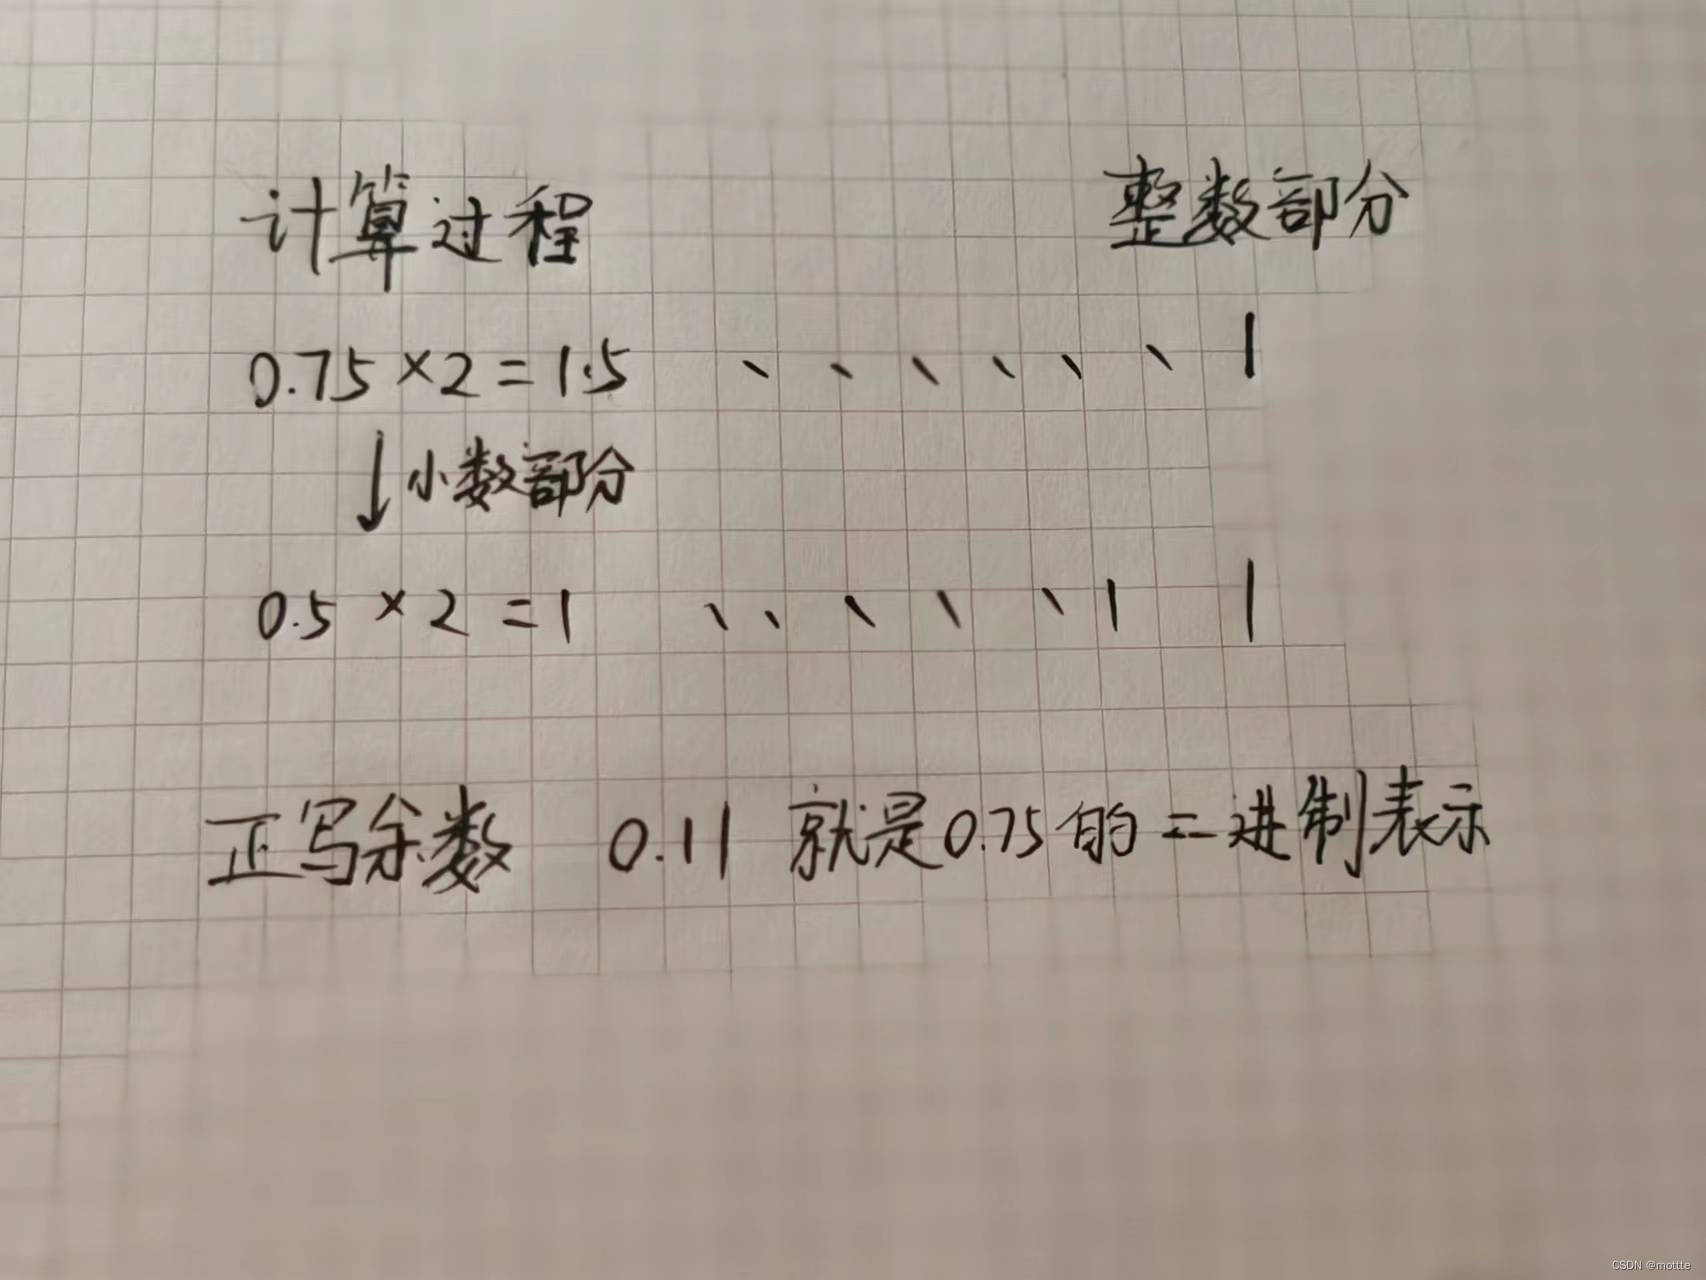 计算过程 整数部分
0.75×2=1.5 、、、、、、 1
↓小数部分
0.5×2=1 、、、、、1 1
正写余数 0.11 就是0.75的二进制表示
CSDN @mottte